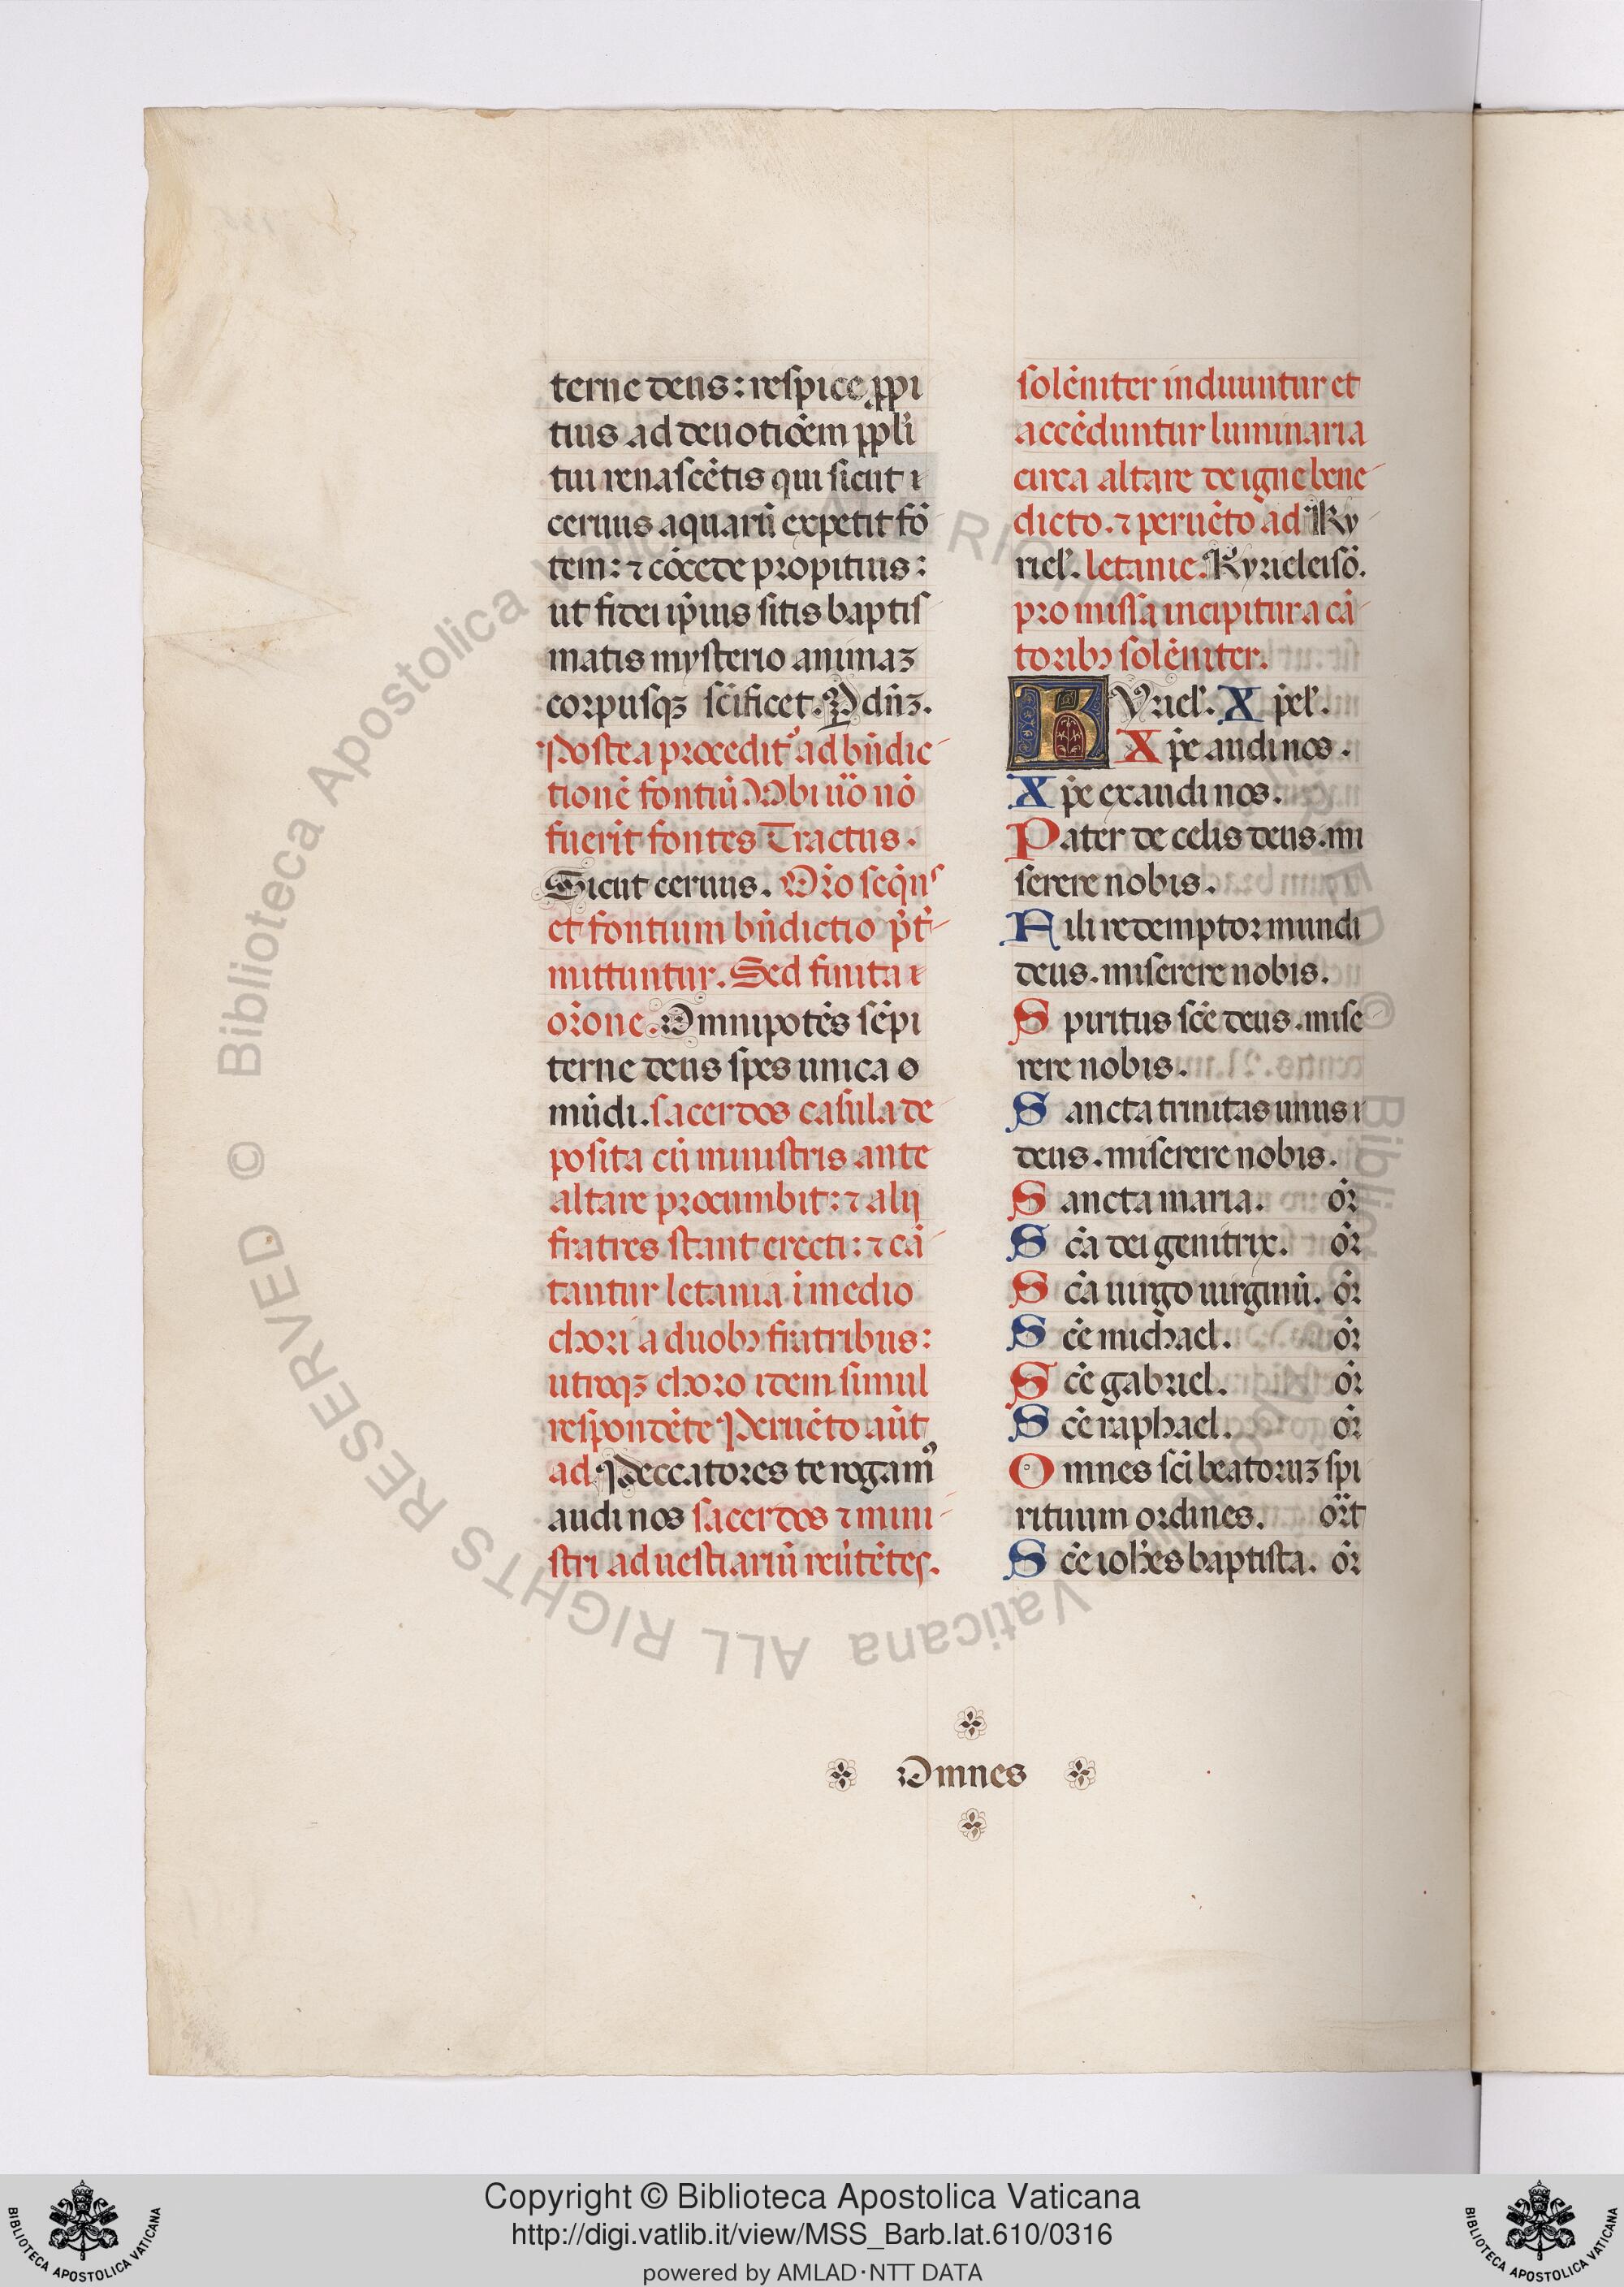 terne deus: respice ꝓpi
tius ad deuotiōem ppl̄i
tui renascētis qui sicut
ceruus aquarū expetit fō
tem: ⁊ cōcede propitius:
ut fidei ip̄ius sitis baptis
matis mysterio animaꝫ
corpusqꝫ sc̄ificet. P dn̄ꝫ.
Postea procedit᷑ ad bn̄dic
tionē fontiū. Vbi u̅o nō
fuerīt fontes Tractus.
Sicut ceruus. Or̄o seq̄ns
et fontium bn̄dictio p̄t
mittuntur. Sed finita
or̄one. Omnipotēs sēpi
terne deus spes unica
mūdi. sacerdos casula de
posita cū ministris ante
altare procumbit: ⁊ alij
fratres stant erecti: ⁊ cā
tantur letania ī medio
chori a duobꝫ fratribus:
utroqꝫ choro idem simul
respondēte Peruēto aūt
ad Peccatores te rogamꝰ
audi nos sacerdos ⁊ mini
stri ad uestiariū reūtētes.
solēniter induuntur et
accēduntur luminaria
circa altare de igne bene
dicto. ⁊ peruēto ad Ky
riel̄. letanie. Kyrieleisō.
pro missa incipitur a cā
toribꝫ solēniter.
Kyriel̄. Xp̄el̄.
Xp̄e audi nos.
Xp̄e exaudi nos.
Pater de celis deus. mi
serere nobis.
Fili redemptor mundi
deus. miserere nobis.
Spiritus sc̄e deus. mise
rere nobis.
Sancta trinitas unus
deus. miserere nobis.
Sancta maria. or̄
Sc̄a dei genitrix. or̄
Sc̄a uirgo uirginū. or̄
Sc̄e michael. or̄
Sc̄e gabriel. or̄
Sc̄e raphael. or̄
Omnes sc̄i beatoruꝫ spi
rituum ordines. or̄t
Sc̄e ioh̄es baptista. or̄
Omnes
© Biblioteca Apostolica Vaticana ALL RIGHTS RESERVED
Copyright © Biblioteca Apostolica Vaticana
http://digi.vatlib.it/view/MSS_Barb.lat.610/0316
powered by AMLAD·NTT DATA
BIBLIOTECA APOSTOLICA VATICANA
BIBLIOTECA APOSTOLICA VATICANA